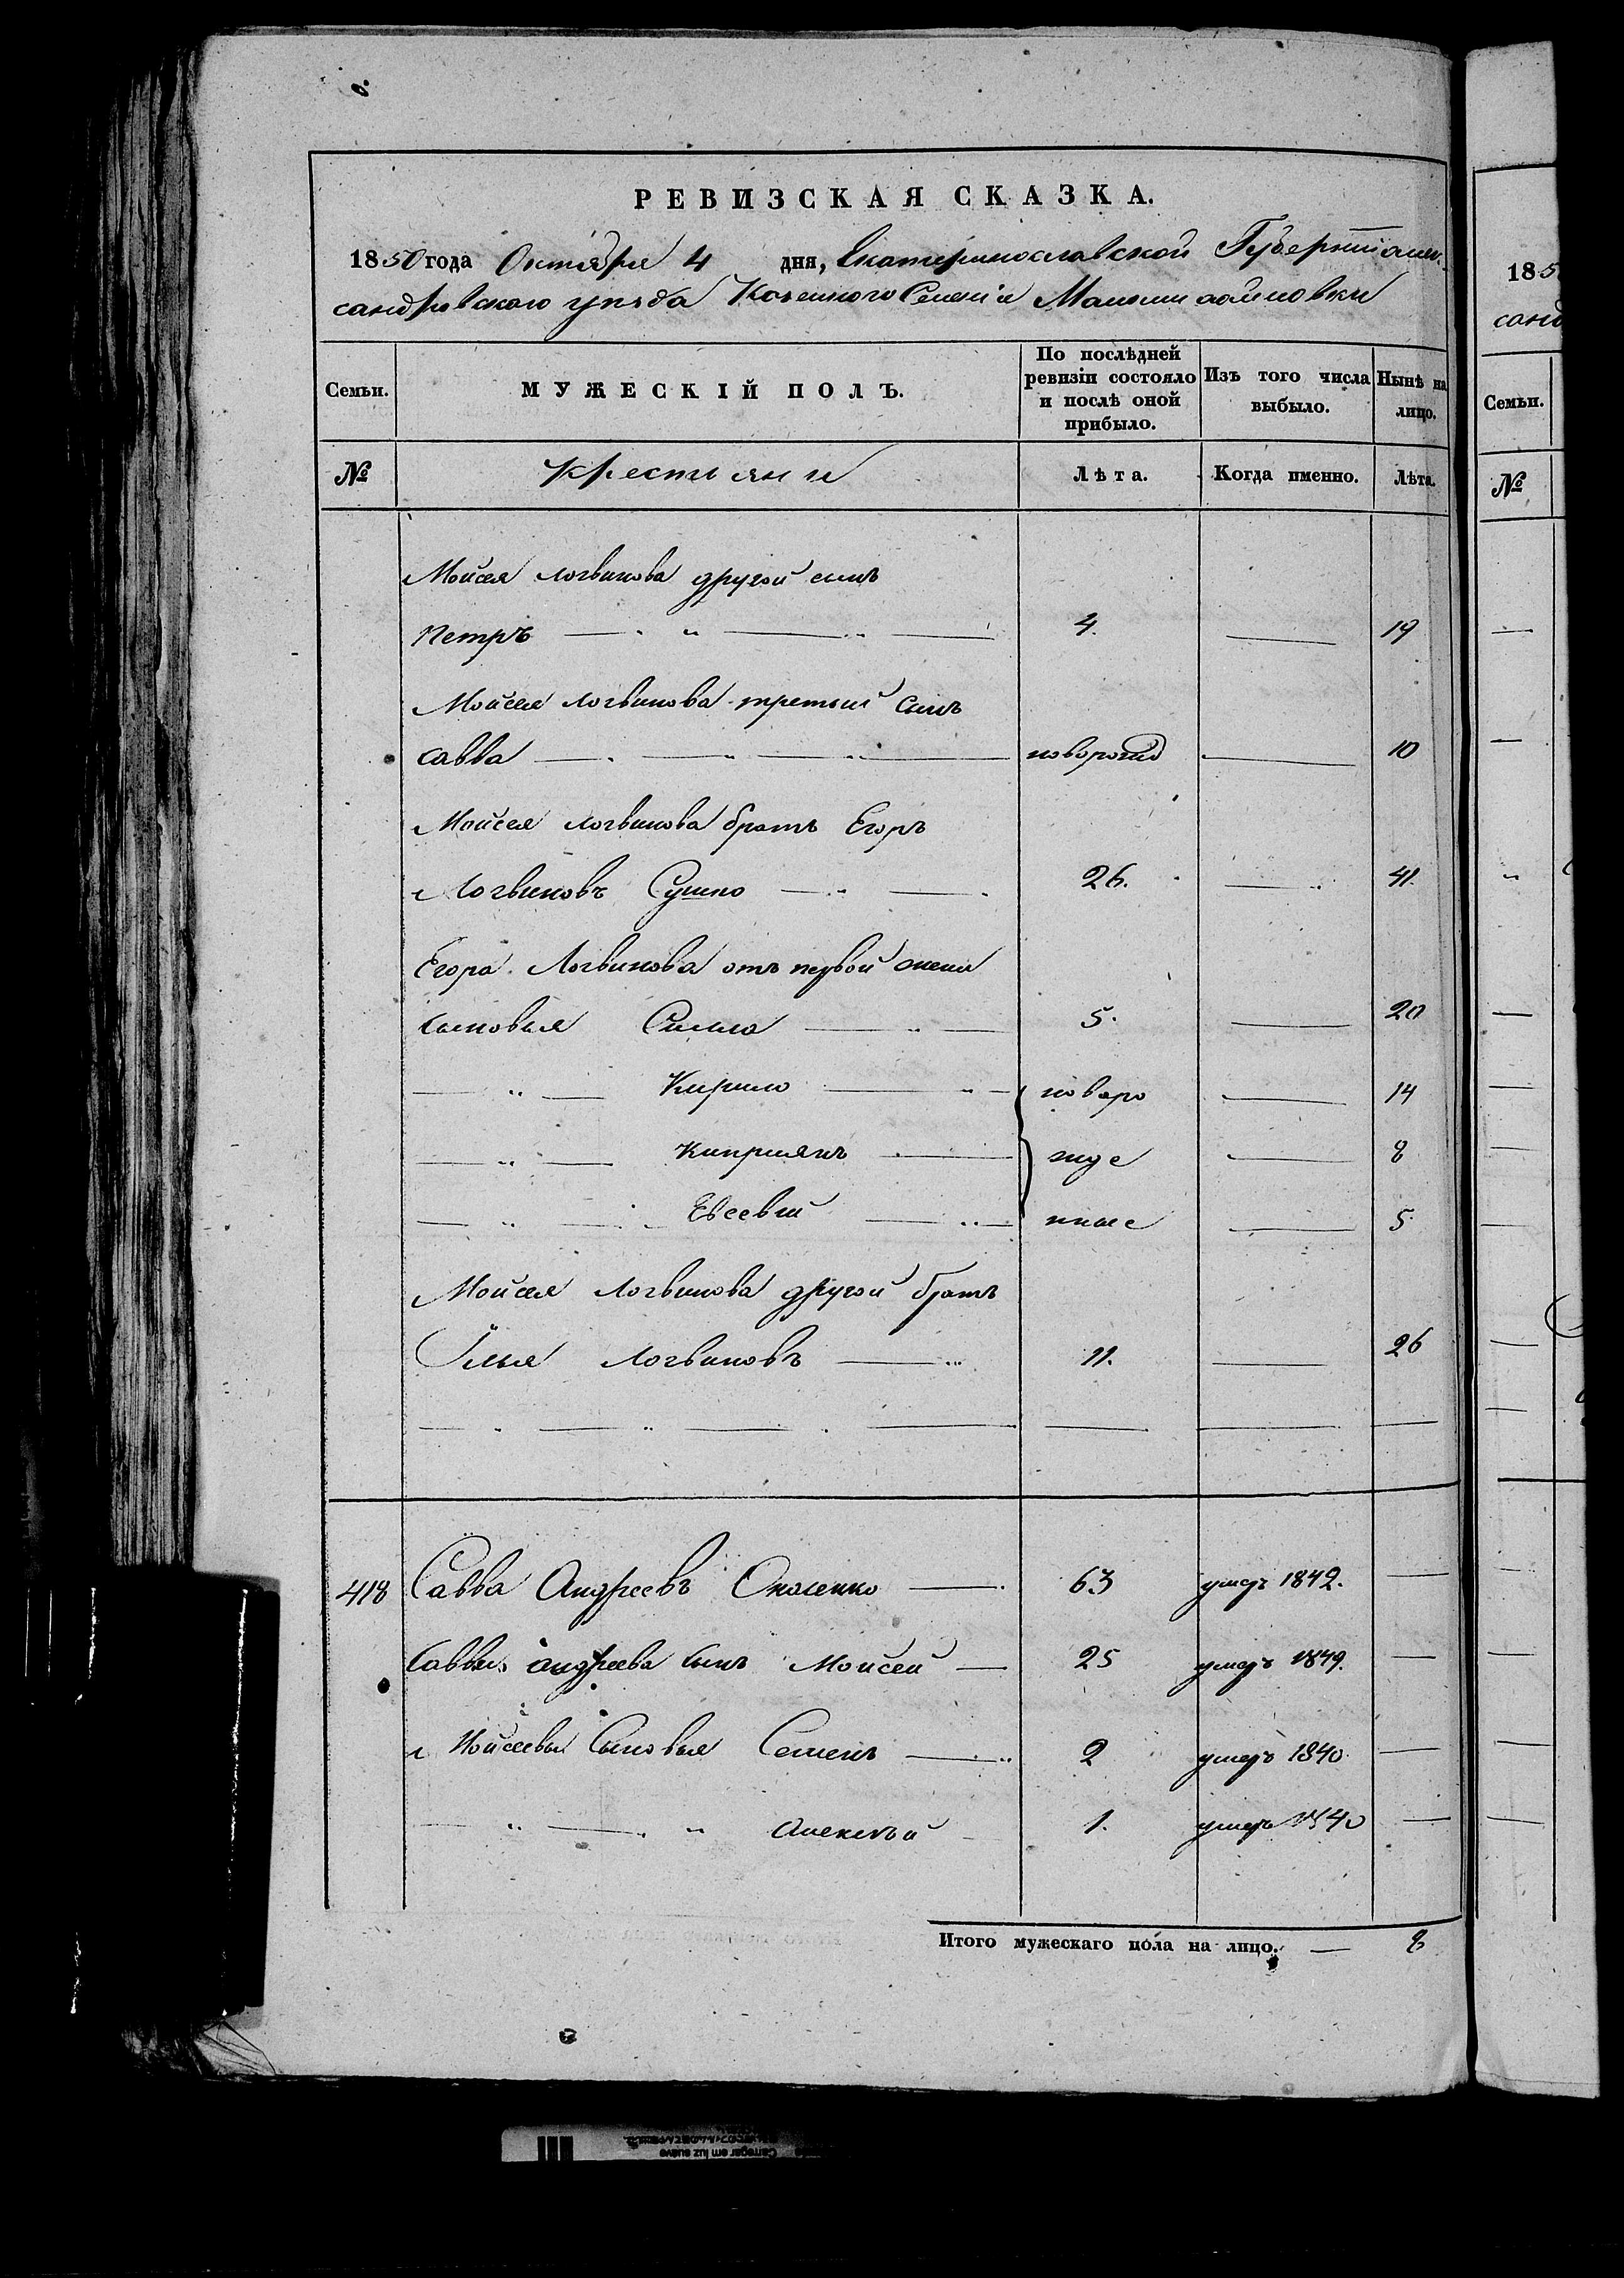 РЕВИЗСКАЯ СКАЗКА.
1850 года Октября 4 дня, Екатеринославской Губерніи Алек-
сандровского уѣзда Казенного Селенія
Семьи. МУЖЕСКІЙ ПОЛЪ. По послѣдней ревизіи состояло и послѣ оной прибыло. Изъ того числа выбыло. Нынѣ на лицо.
№ Крестьяни Лѣта. Когда именно. Лѣта.
Мойсея Логвинова другой сынъ
Петръ 4. 19
Мойсея Логвинова третий Сынъ
Савва новорожд 10
Мойсея Логвинова братъ Егоръ
Логвиновъ Сушко 26. 41.
Егора Логвинова отъ первой жены
Сыновья 5. 20
Кирило новоро 14
Киприянъ жде 8
Евсевий нные 5
Мойсея Логвинова другой братъ
Илья Логвиновъ 11. 26
418 Савва Андреевъ 63 умеръ 1842.
Саввы Андреева сынъ Моисей 25 умеръ 1849.
Мойсеевы Сыновья Семенъ 2 умеръ 1840
Алексѣй 1. умеръ 1840
Итого мужескаго пола на лицо. 8
185
санд
Семьи.
№